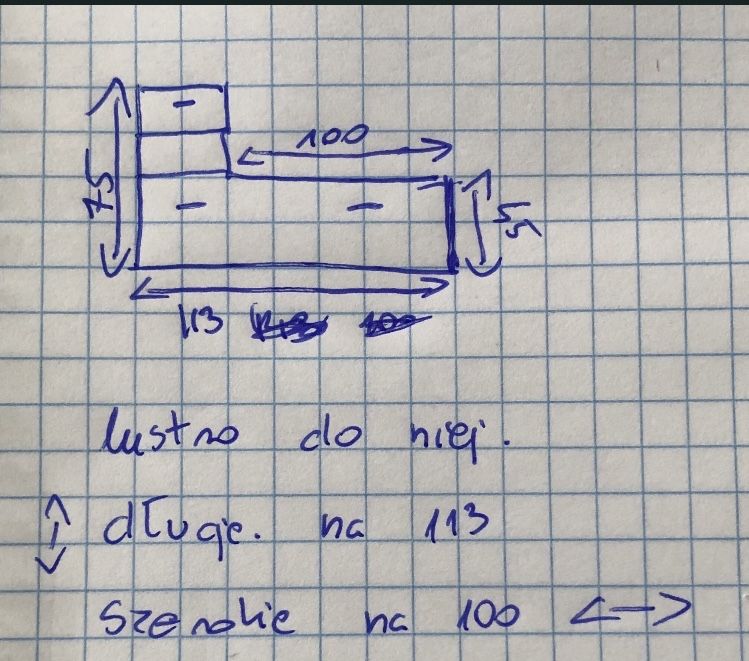 100
75
55
113
lustro do niej.
długie. na 113
szerokie na 100